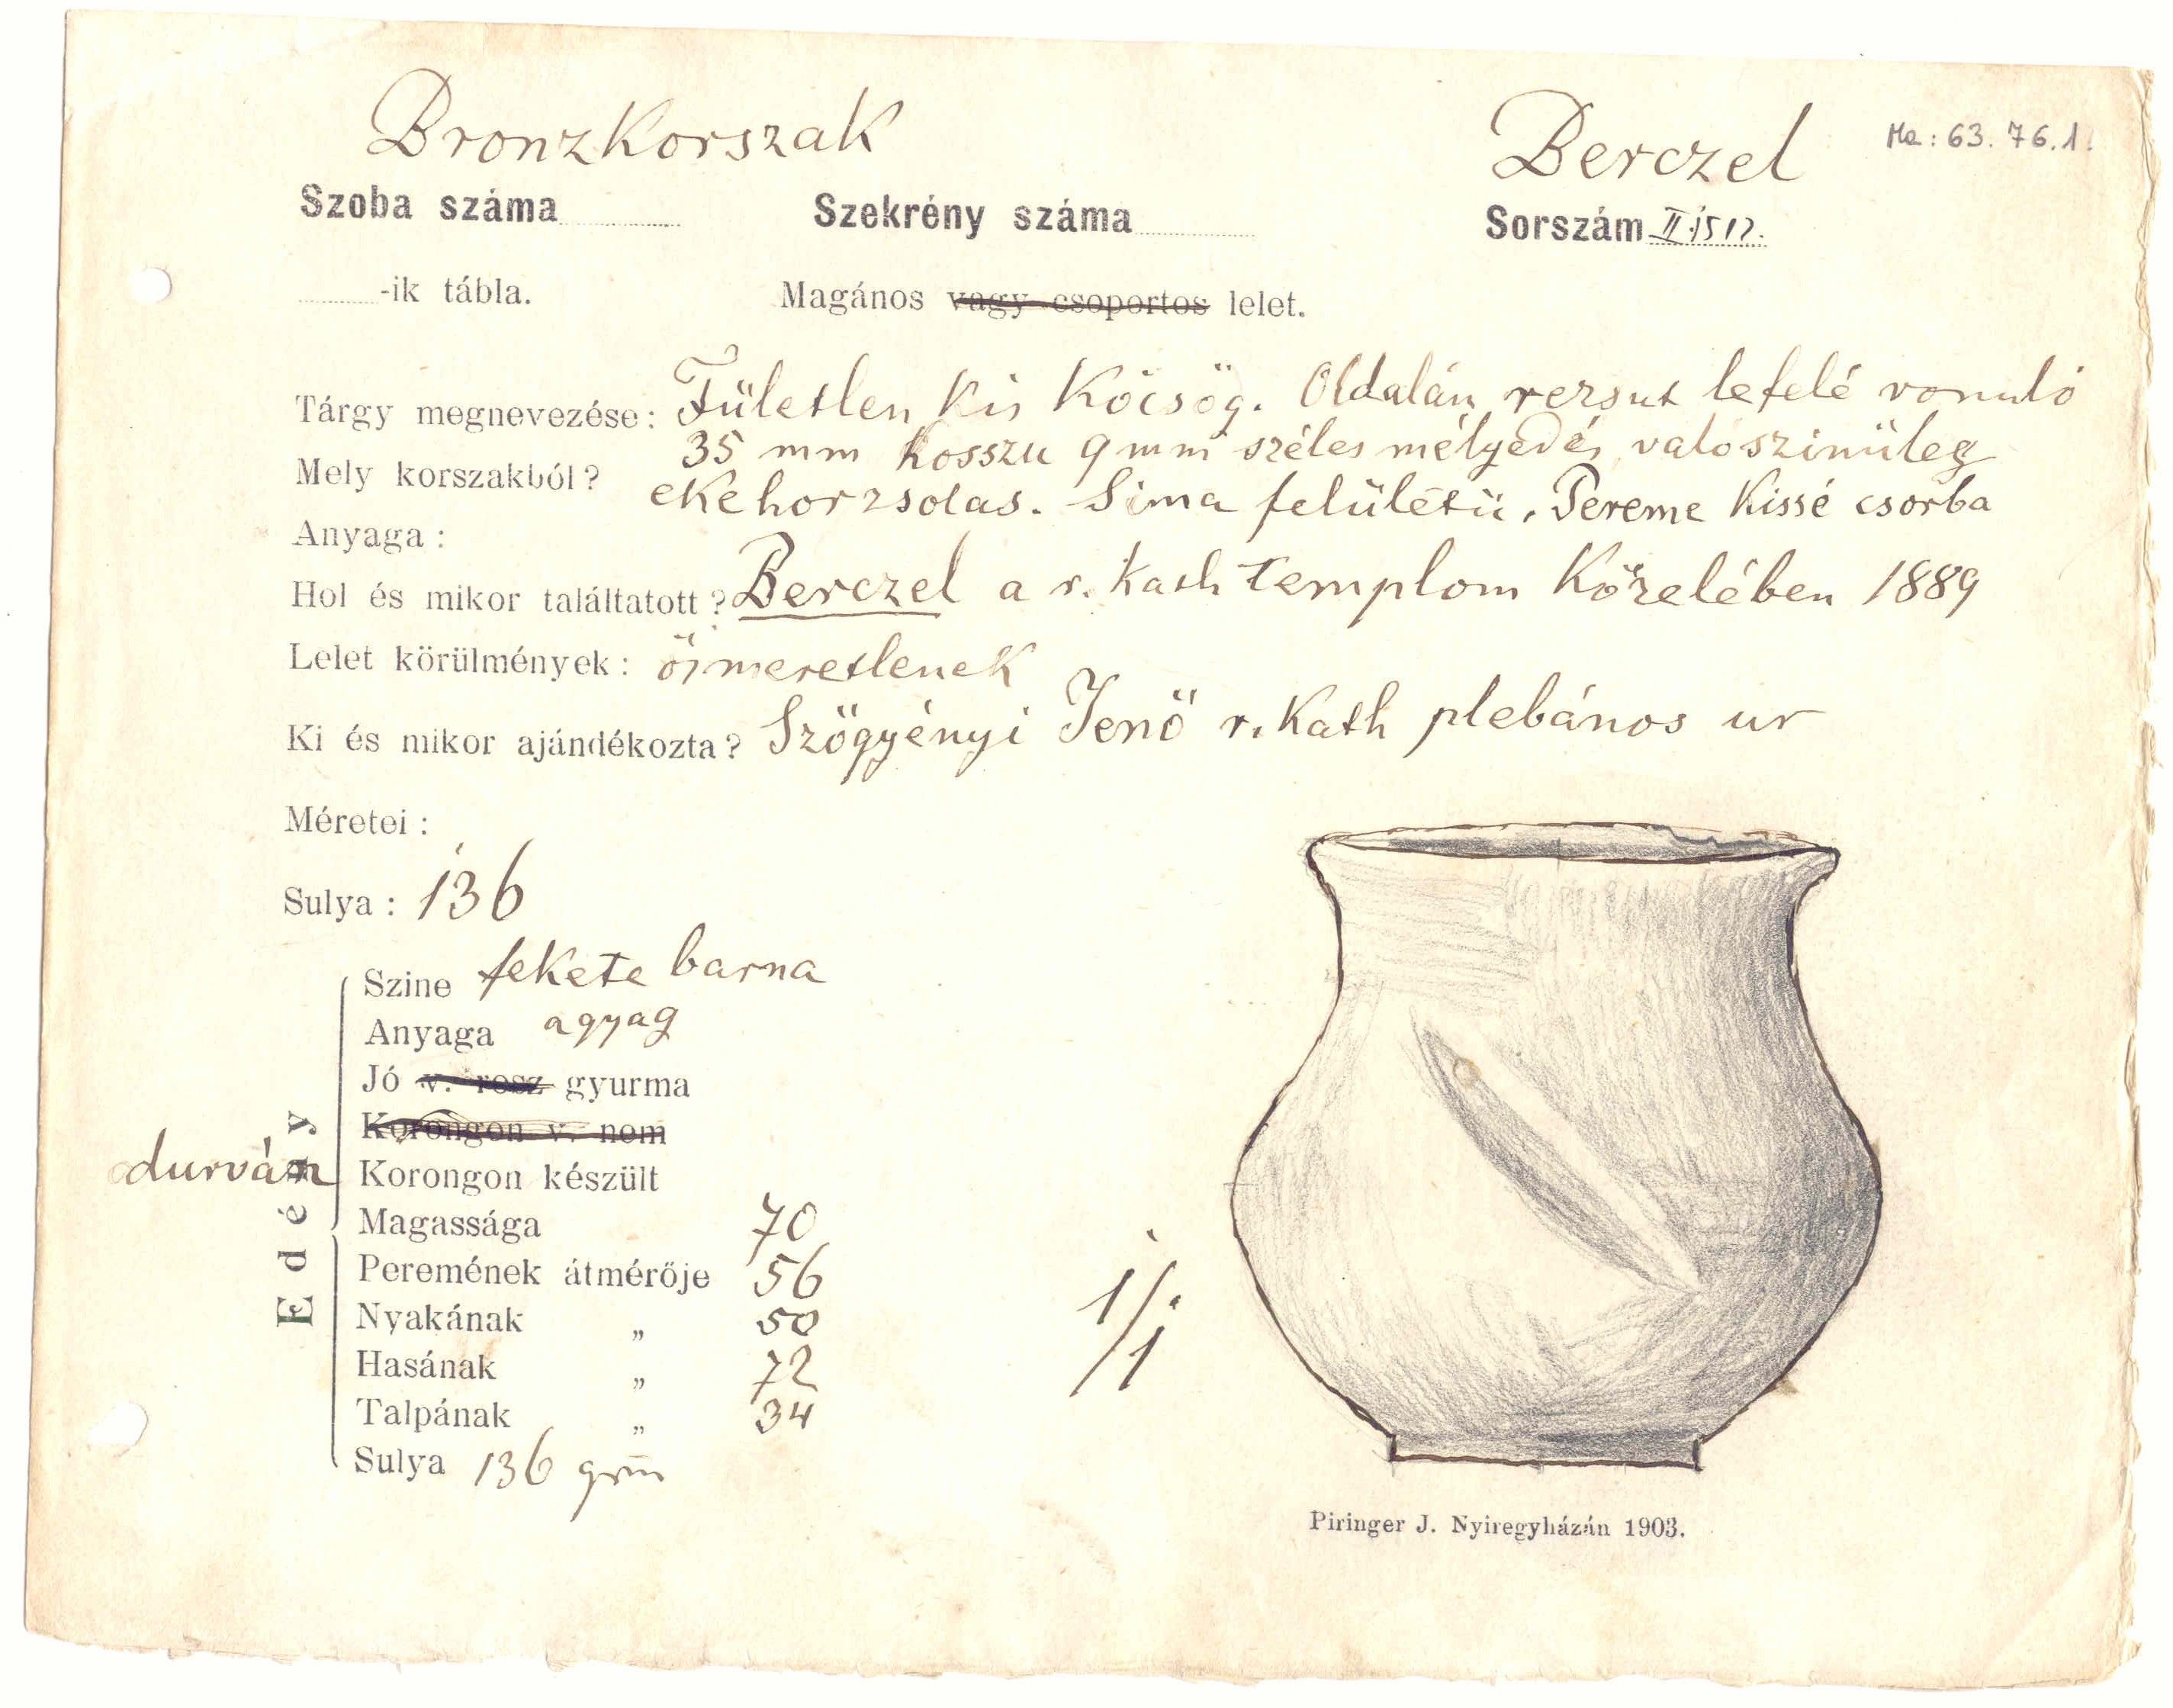 Bronzkorszak
Berczel
Ma: 63. 76.1.
Szoba száma
Szekrény száma
Sorszám II.
-ik tábla.
Magános vagy csoportos lelet.
Tárgy megnevezése: Fületlen kis köcsög. Oldalán rézsut lefelé vonuló
35 mm hosszu 9 mm széles mélyedés valószinüleg
Mely korszakból?
ekehorzsolas. Sima felületü. Pereme kissé csorba
Anyaga:
Hol és mikor találtatott? Berczel a r. kath templom közelében 1889
Lelet körülmények: ösmeretlenek
Ki és mikor ajándékozta? Szögyényi Jenö r. kath plebános ur
Méretei:
Sulya: 136
Edény
Szine fekete barna
Anyaga agyag
Jó v. rosz gyurma
Korongon v. nem
durván Korongon készült
Magassága 70
Peremének átmérője 56
Nyakának „ 50
Hasának „ 72
Talpának „ 34
Sulya 136 grm
1/1
Piringer J. Nyiregyházán 1903.